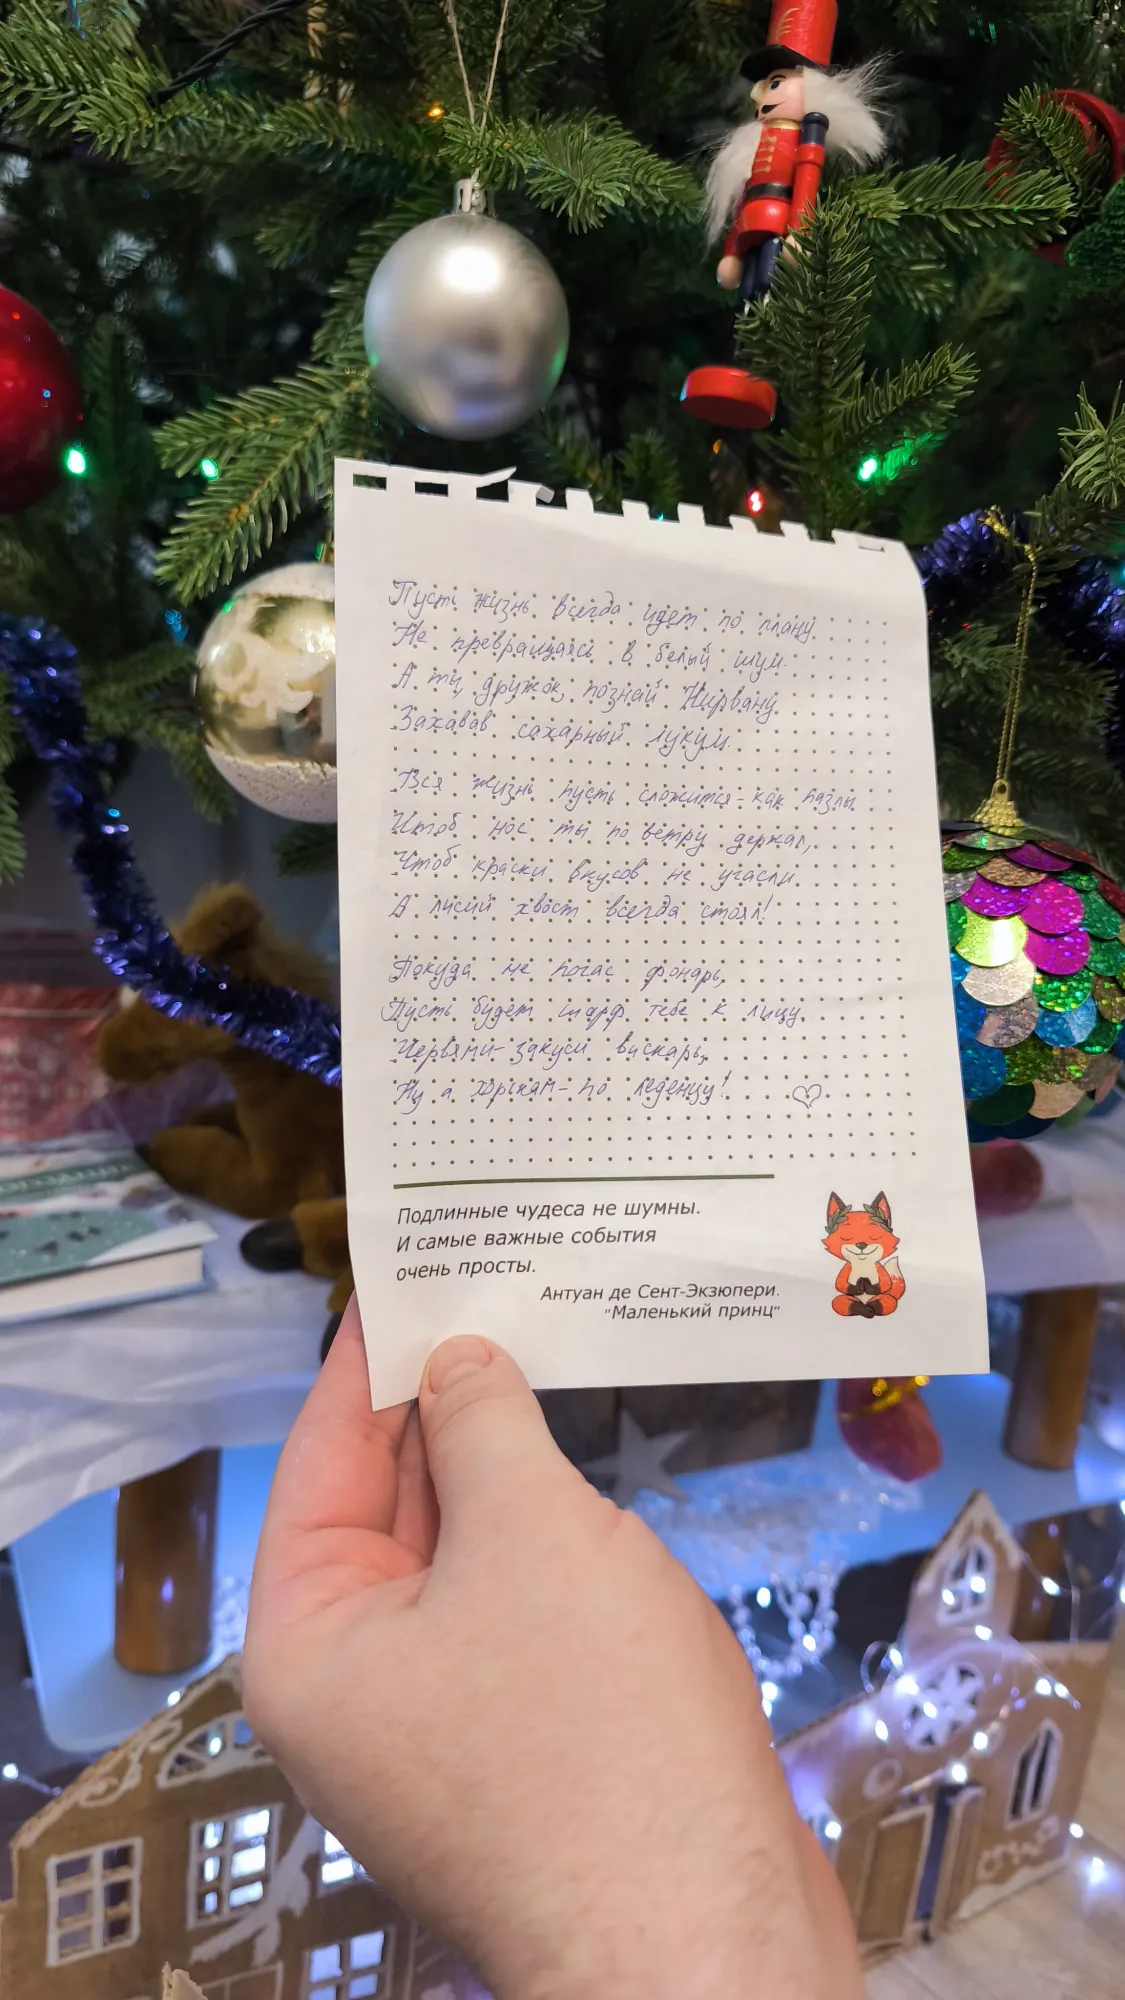 Пусть жизнь всегда идет по плану
Не превращаясь в белый шум.
А ты, дружок, познай Нирвану
Захавав сахарный лукум.
Вся жизнь пусть сложится - как пазлы
Чтоб нос ты по ветру держал,
Чтоб краски вкусов не угасли
А лисий хвост всегда стоял!
Покуда не погас фонарь,
Пусть будет шарф тебе к лицу.
Червями - закуси вискарь,
Ну а хорькам - по леденцу!
Подлинные чудеса не шумны.
И самые важные события
очень просты.
Антуан де Сент-Экзюпери.
"Маленький принц"